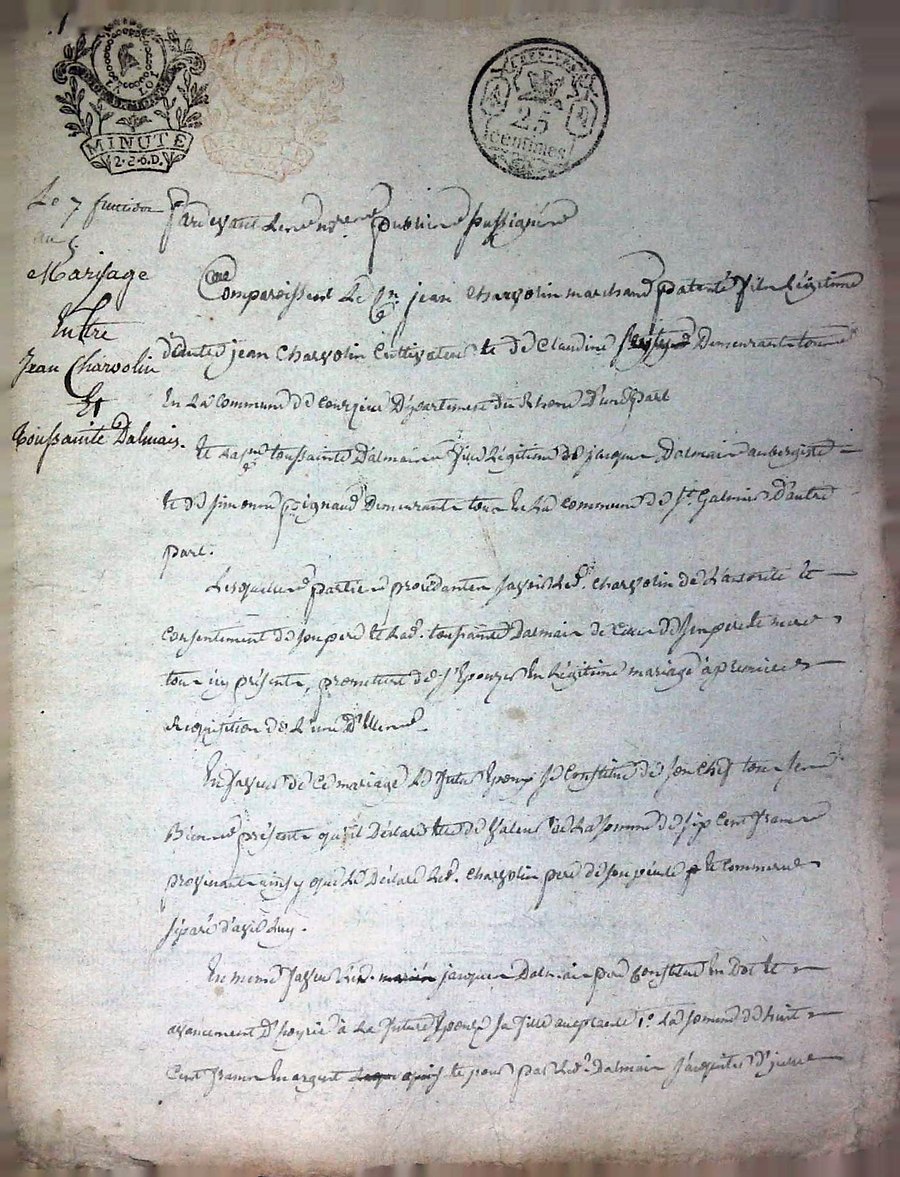 MINUTE
2.S.6.D.
25
centimes
Le 7
au 5
Mariage
Entre
Jean Charvolin
Et
Toussainte Dalmais.
Pardevant Le no.re public Soussigné
Comparoissent Le Cn. jean Charvolin marchand patenté fils Légitime
de autre jean Charvolin Cultivateur et de Claudine Demeurants tous
En La Commune de Courzieu Département du Rhone D'une part
Et La toussainte Dalmais fille Légitime de jacques Dalmais aubergiste
et de simonne pignaud Demeurants tous En La Commune de St. Galmier D'autre
part.
Lesquelles parties procédantes savoir Led. Charvolin de L'autorité et
Consentement de son pere et Lad. toussainte Dalmais de Ceux de ses pere et mere
tous icy présents, promettent de s'Epouzer En Légitime mariage à premiere
Requisition de L'une D'Elles
En faveur de Ce mariage Le futur Epoux se Constitue de son Chef tous ses
Biens présents qu'il Déclare être de Valeur de La somme de six Cent francs
provenants ainsy que Le Déclare Led. Charvolin pere de son pécule et Commerce
séparé d'avec Luy.
En meme faveur Led. jacques Dalmais pere Constitue En Dot et
avancement D'hoyrie à La future Epouse sa fille acceptante 1°. La somme de huit
Cent francs En argent et pour Led. Dalmais s'acquitter